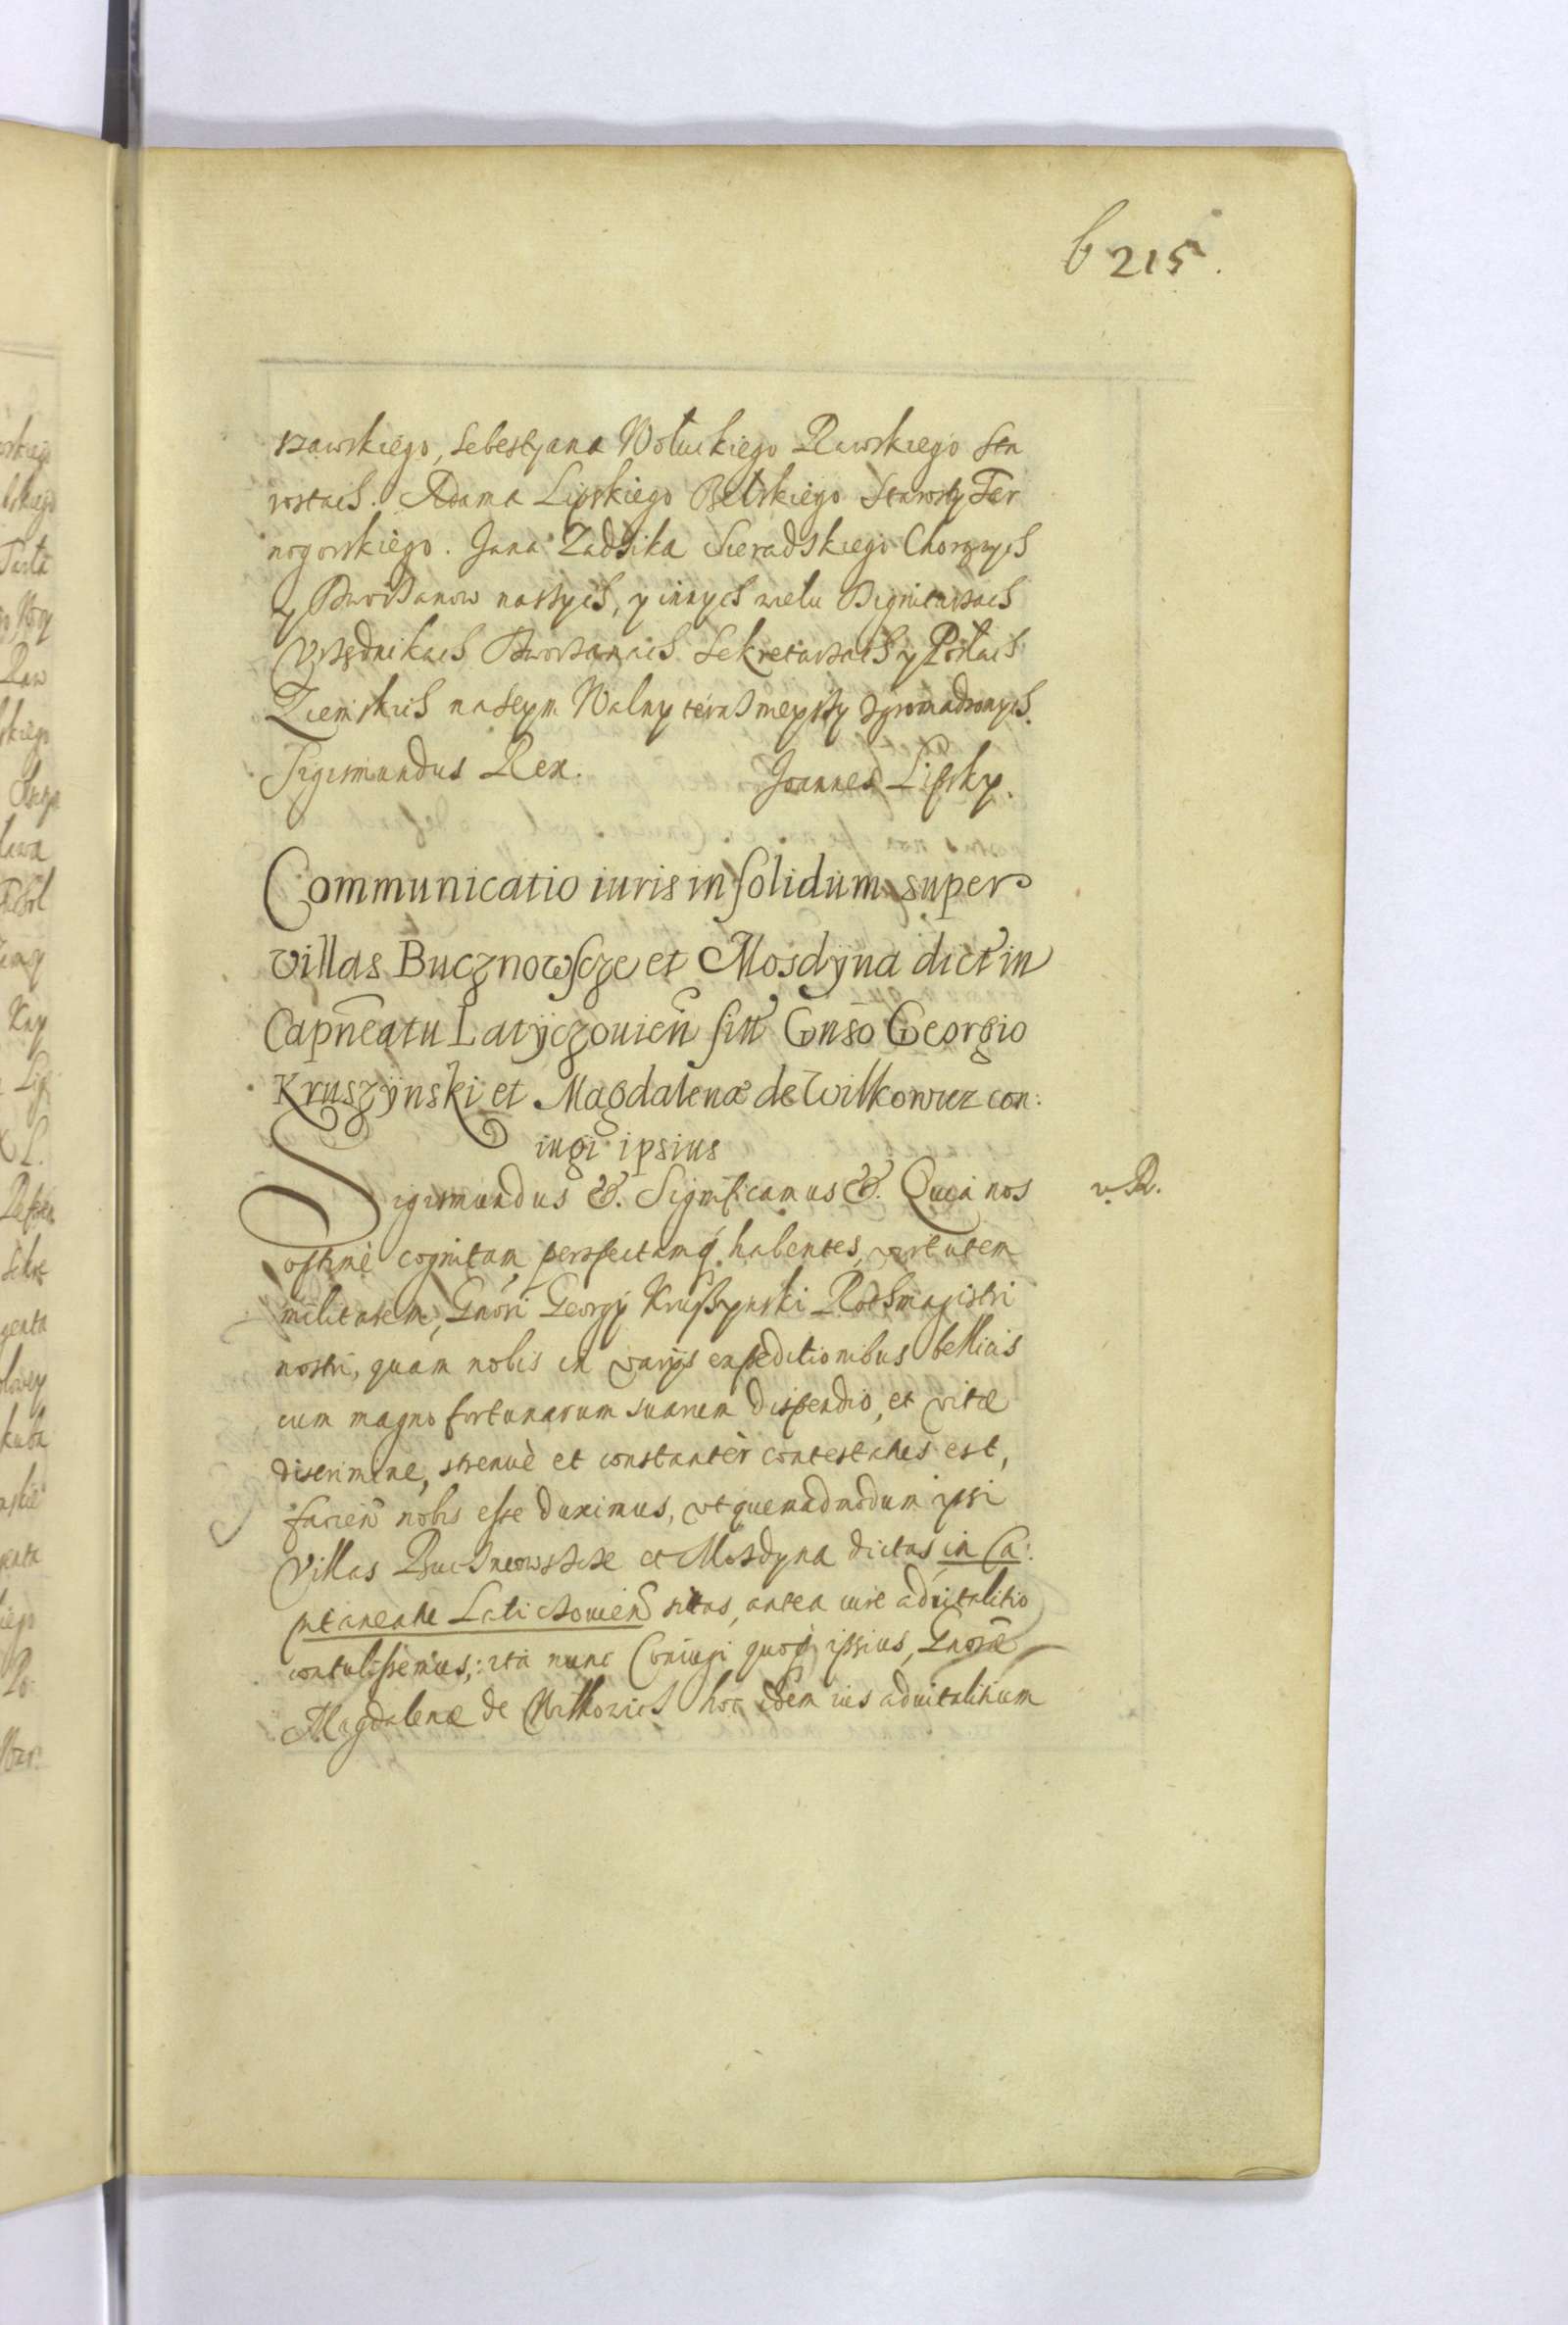 b 215.
szawskiego, Sebestyana Wołuckiego Rawskiego Sta
rostach. Adama Lipskiego Bełskiego Starosty Ter
nogorskiego. Jana Zadzika Sieradzkiego Chorązych
y Dworzanow naszych, y innych wielu Dignitarzach
Vrzędnikach Dworzanach Sekretarzach y Posłach
Ziemskich na Seym Walny terazнieyszy zgromadzonych.
Sigismundus Rex. Joannes Lipsky.
Communicatio iuris in solidum super
villas Bucznowscze et Mosdÿna dict in
Capneatu Latÿczouien sitt Gnso Georgio
Kruszÿnski et Magdalenæ de Wilkowicz con:
iugi ipsius
Sigismundus &. Significamus &. Quia nos v. R.
optime cognitam perspectamq habentes, virtutem
militarem, Gnosi Georgÿ Kruszynski Rothmagistri
nostri, quam nobis in varÿs expeditionibus bellicis
cum magno fortunarum suarum dispendio, et vitæ
discrimine, strenuè et constantèr contestatus est,
facien nobis esse duximus, vt quemadmodum ipsi
Villas Buczneowszcze et Mosdyna dictas in Ca:
pitaneatu Laticzouien sitas, antea iure aduitalitio
contulissemus,: ita nunc Coniugi quoq ipsius, Gnosæ
Magdalenæ de Wilkowicz hoc idem ius aduitalitium